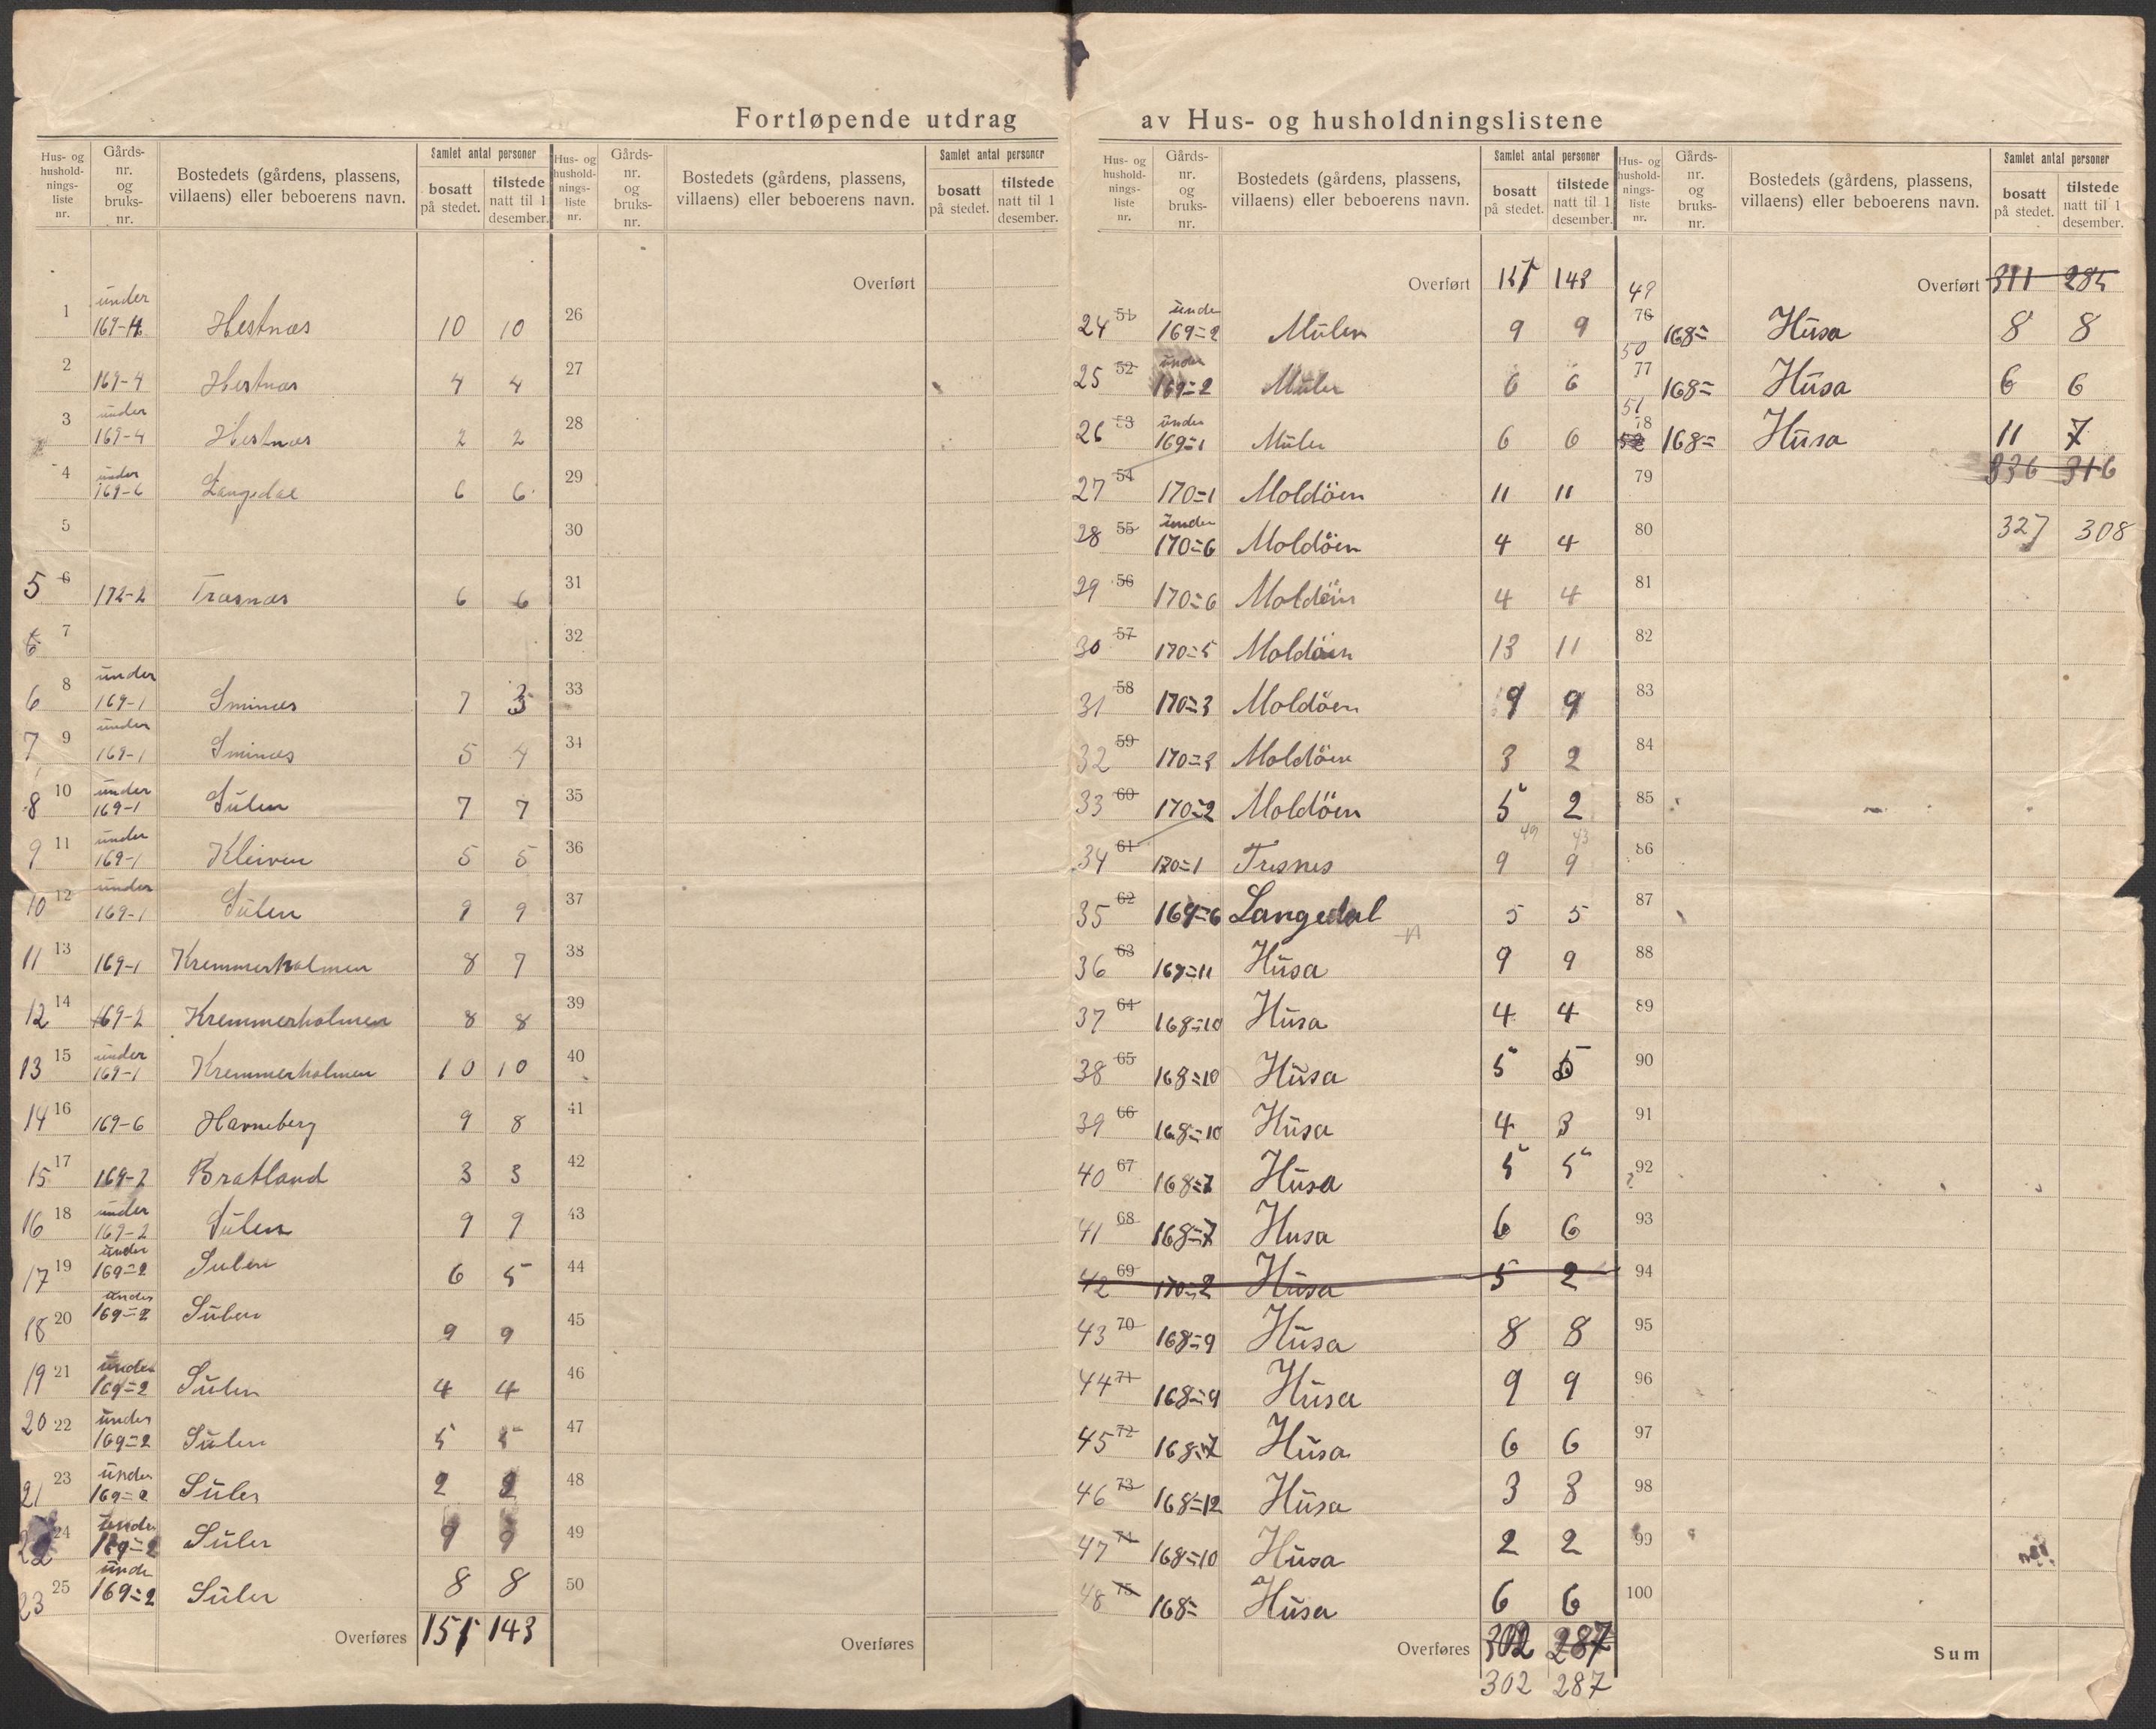 Fortløpende utdrag av Hus- og husholdningslistene
Hus- og husholdnings-liste nr. Gårds-nr. og bruks-nr. Bostedets (gårdens, plassens, villaens) eller beboerens navn. Samlet antal personer bosatt på stedet. tilstede natt til 1 desember.
Hus- og husholdnings-liste nr. Gårds-nr. og bruks-nr. Bostedets (gårdens, plassens, villaens) eller beboerens navn. Samlet antal personer bosatt på stedet. tilstede natt til 1 desember.
1 under 169-4 Hestnæs 10 10
2 169-4 Hestnæs 4 4
3 under 169-4 Hestnæs 2 2
4 under 169-6 Langedal 6 6
5
5 6 172-2 Træsnæs 6 6
6 7
6 8 under 169-1 Sminæs 7 3
7 9 under 169-1 Sminæs 5 4
8 10 under 169-1 Sülen 7 7
9 11 under 169-1 Kleiven 5 5
10 12 under 169-1 Sülen 9 9
11 13 169-1 Kremmerholmen 8 7
12 14 169-2 Kremmerholmen 8 8
13 15 under 169-1 Kremmerholmen 10 10
14 16 169-6 Havneberg 9 8
15 17 169-2 Bratland 3 3
16 18 under 169-2 Sülen 9 9
17 19 under 169=2 Sulen 6 5
18 20 under 169=2 Sülen 9 9
19 21 under 169=2 Sülen 4 4
20 22 under 169=2 Sülen 5 5
21 23 under 169=2 Sülen 2 2
22 24 under 169=2 Sülen 9 9
23 25 under 169=2 Sülen 8 8
Overføres 151 143
Overført
26
27
28
29
30
31
32
33
34
35
36
37
38
39
40
41
42
43
44
45
46
47
48
49
50
Overføres
Hus- og husholdnings-liste nr. Gårds-nr. og bruks-nr. Bostedets (gårdens, plassens, villaens) eller beboerens navn. Samlet antal personer bosatt på stedet. tilstede natt til 1 desember.
Hus- og husholdnings-liste nr. Gårds-nr. og bruks-nr. Bostedets (gårdens, plassens, villaens) eller beboerens navn. Samlet antal personer bosatt på stedet. tilstede natt til 1 desember.
Overført 151 143
24 51 under 169=2 Mülen 9 9
25 52 under 169=2 Mülen 6 6
26 53 under 169=1 Mülen 6 6
27 54 170=1 Moldöen 11 11
28 55 under 170=6 Moldöen 4 4
29 56 170=6 Moldöen 4 4
30 57 170=5 Moldöen 13 11
31 58 170=3 Moldöen 9 9
32 59 170=3 Moldöen 3 2
33 60 170=2 Moldöen 5 2
49 43
34 61 170=1 Tresnes 9 9
35 62 169=6 Langedal 5 5
36 63 169=11 Hüsa 9 9
37 64 168=10 Hüsa 4 4
38 65 168=10 Hüsa 5 5
39 66 168=10 Hüsa 4 3
40 67 168=7 Hüsa 5 5
41 68 168=7 Husa 6 6
42 69 170=2 Hüsa 5 2
43 70 168=9 Hüsa 8 8
44 71 168=9 Hüsa 9 9
45 72 168=7 Hüsa 6 6
46 73 168=12 Hüsa 3 3
47 74 168=10 Hüsa 2 2
48 75 168= Hüsa 6 6
Overføres 302 287
302 287
Overført 311 285
49 76 168= Hüsa 8 8
50 77 168= Hüsa 6 6
51 78 52 168= Hüsa 11 7
336 316
79
80 327 308
81
82
83
84
85
86
87
88
89
90
91
92
93
94
95
96
97
98
99
100
Sum